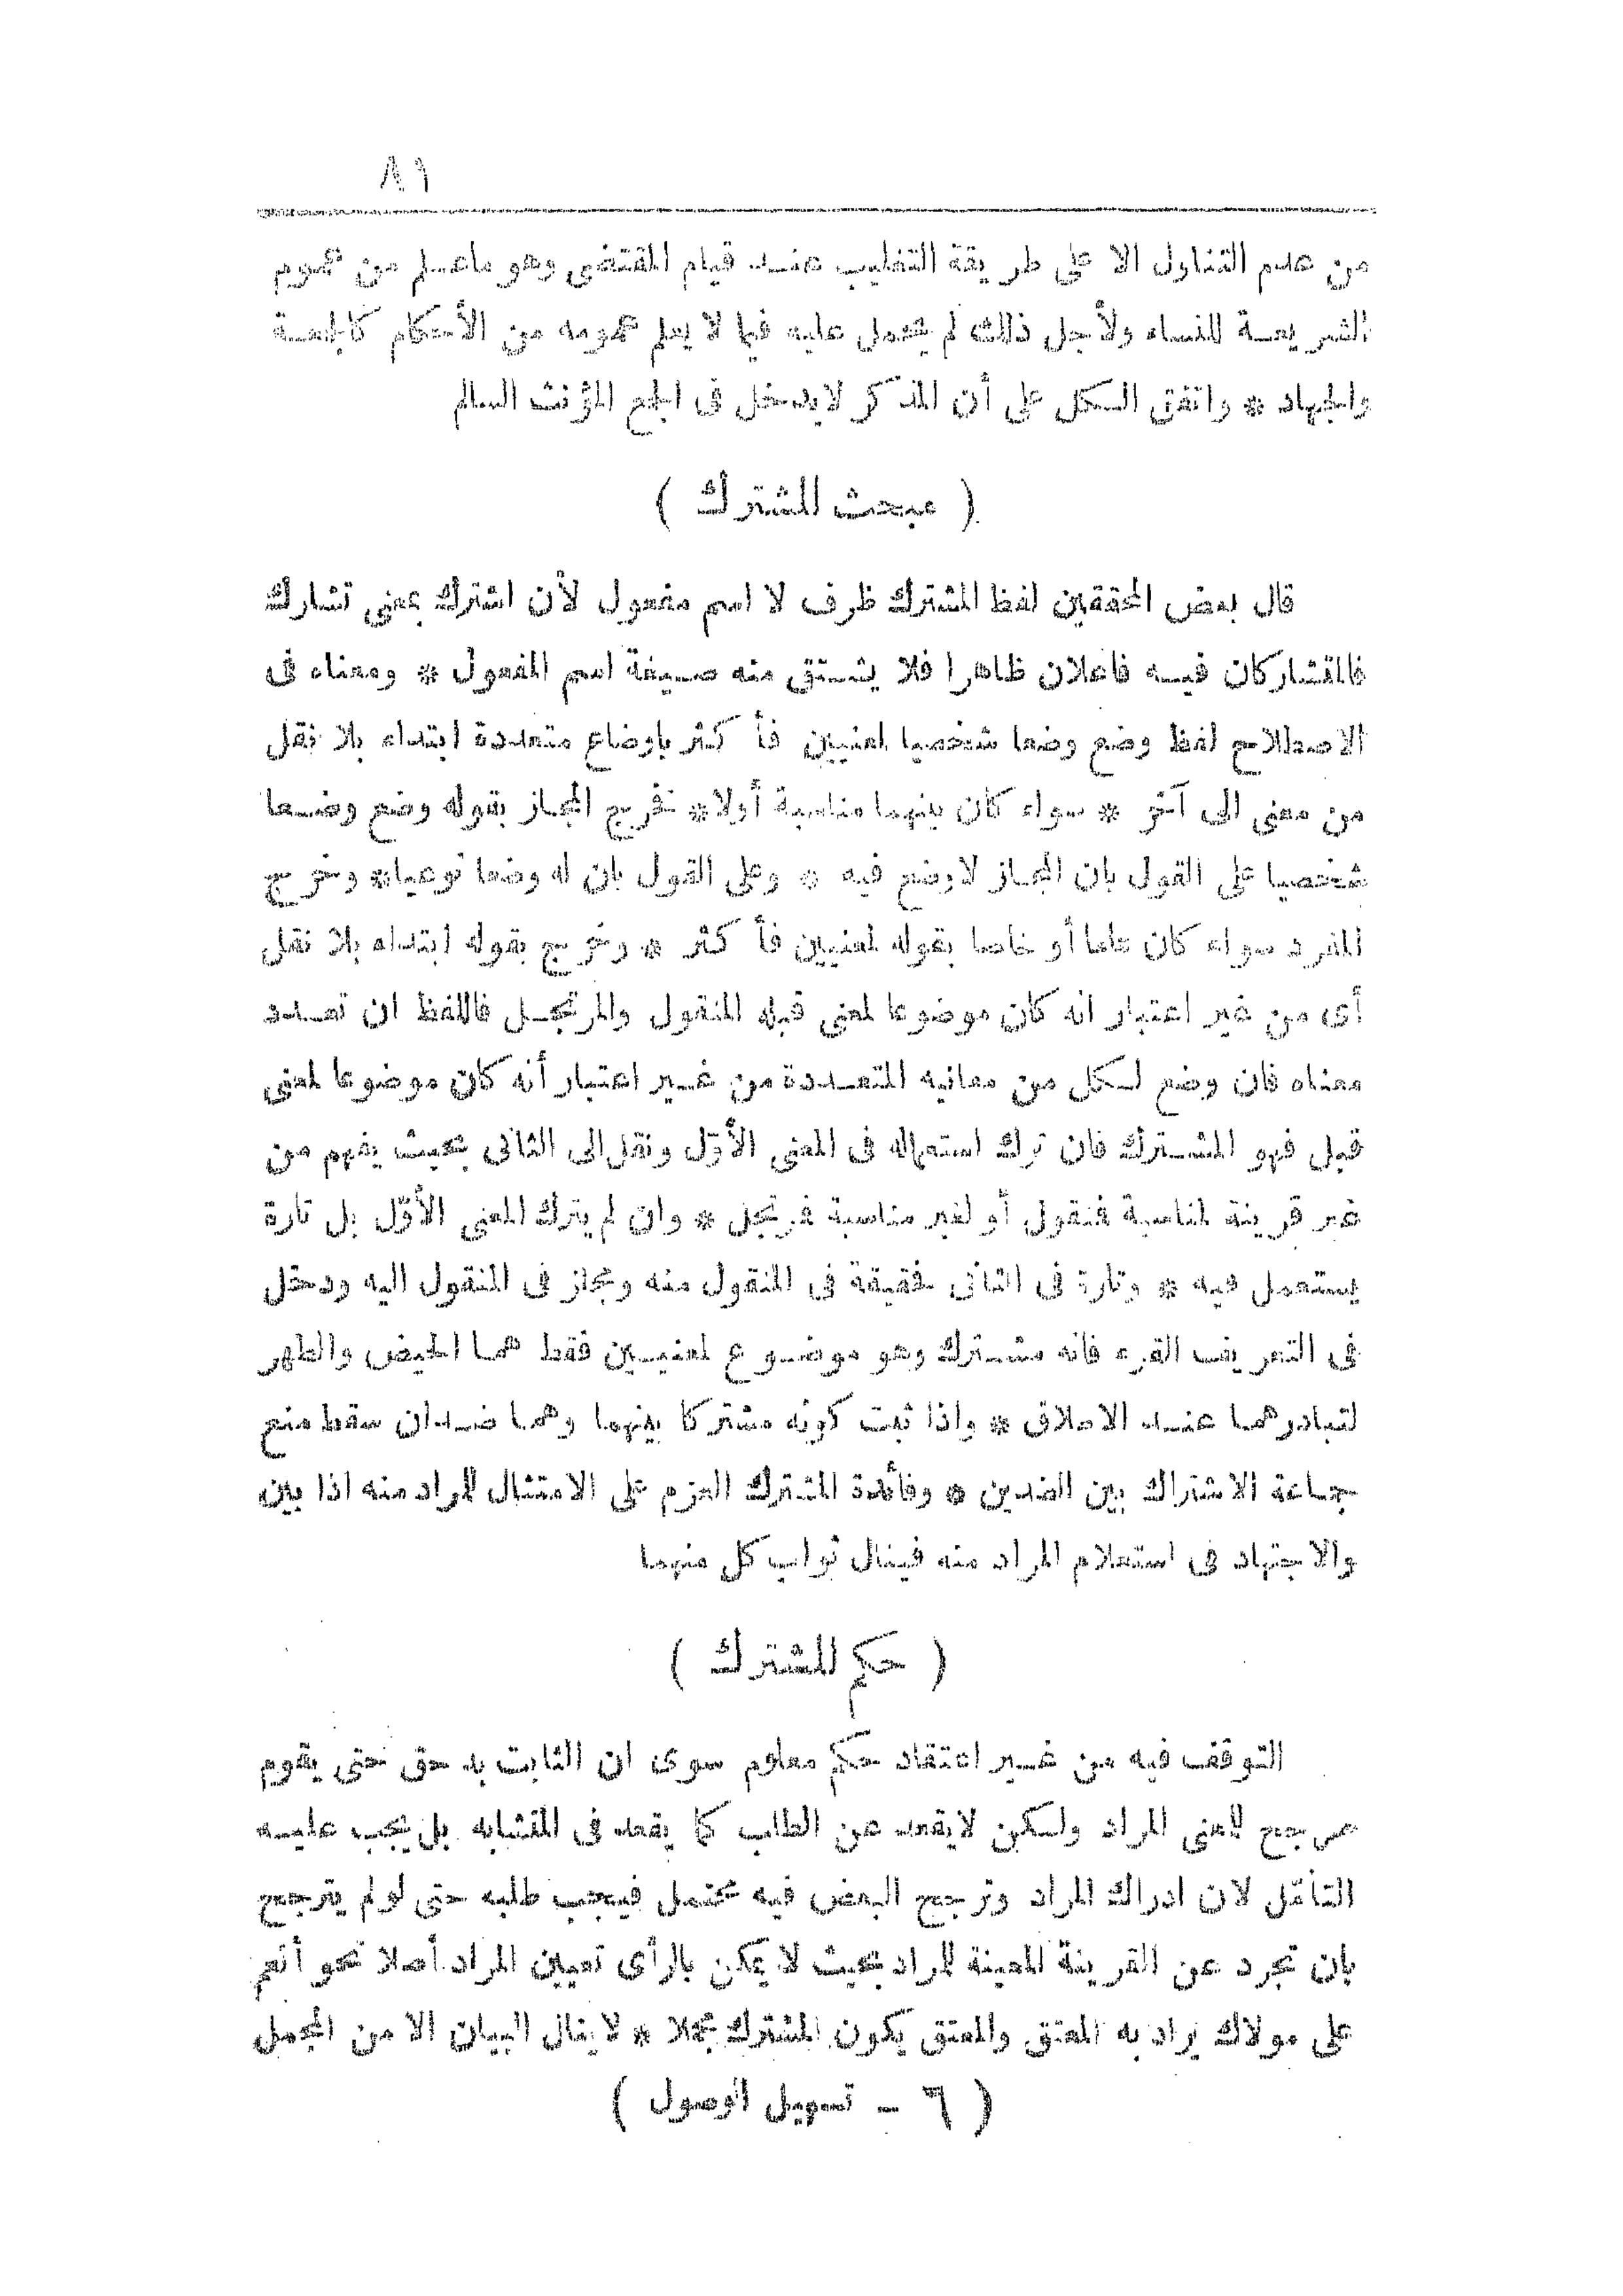 ٨١
من عدم التناول الا على طريقة التغليب عند قيام المقتضى وهو ماعلم من عموم
الشريعة للنساء ولأجل ذلك لم يحمل عليه فيما لا يعلم عمومه من الأحكام كالجمعة
والجهاد * واتفق الكل على أن المذكر لايدخل فى الجمع المؤنث السالم
( مبحث المشترك )
قال بعض المحققين لفظ المشترك ظرف لا اسم مفعول لأن اشترك بمعنى تشارك
فالمتشاركان فيه فاعلان ظاهرا فلا يشتق منه صيغة اسم المفعول * ومعناه فى
الاصطلاح لفظ وضع وضعا شخصيا لمعنيين فأ كثر باوضاع متعددة ابتداء بلا نقل
من معنى الى آخر * سواء كان بينهما مناسبة أولا * فخرج المجاز بقوله وضع وضعا
شخصيا على القول بان المجاز لاوضع فيه * وعلى القول بان له وضعا نوعيا * وخرج
المفرد سواء كان عاما أو خاصا بقوله لمعنيين فأ كثر * وخرج بقوله ابتداء بلا نقل
أى من غير اعتبار انه كان موضوعا لمعنى قبله المنقول والمرتجل فاللفظ ان تعدد
معناه فان وضع لكل من معانيه المتعددة من غير اعتبار أنه كان موضوعا لمعنى
قبل فهو المشترك فان ترك استعماله فى المعنى الأوّل ونقل الى الثانى بحيث يفهم من
غير قرينة لمناسبة فمنقول أو لغير مناسبة فمرتجل * وان لم يترك المعنى الأوّل بل تارة
يستعمل فيه * وتارة فى الثانى فحقيقة فى المنقول منه ومجاز فى المنقول اليه ودخل
فى التعريف القرء فانه مشترك وهو موضوع لمعنيين فقط هما الحيض والطهر
لتبادرهما عند الاطلاق * واذا ثبت كونه مشتركا بينهما وهما ضدان سقط منع
جماعة الاشتراك بين الضدين * وفائدة المشترك العزم على الامتثال للمراد منه اذا بين
والاجتهاد فى استعلام المراد منه فينال ثواب كل منهما
( حكم المشترك )
التوقف فيه من غير اعتقاد حكم معلوم سوى ان الثابت به حق حتى يقوم
مرجح للمعنى المراد ولكن لايقعد عن الطلب كما يقعد فى المتشابه بل يجب عليه
التأمّل لان ادراك المراد وترجح البعض فيه محتمل فيجب طلبه حتى لو لم يترجح
بان تجرد عن القرينة المعينة للمراد بحيث لا يمكن بالرأى تعيين المراد أصلا نحو أنعم
على مولاك يراد به المعتق والمعتق يكون المشترك مجملا * لا ينال البيان الا من المجمل
( ٦ - تسهيل الوصول )